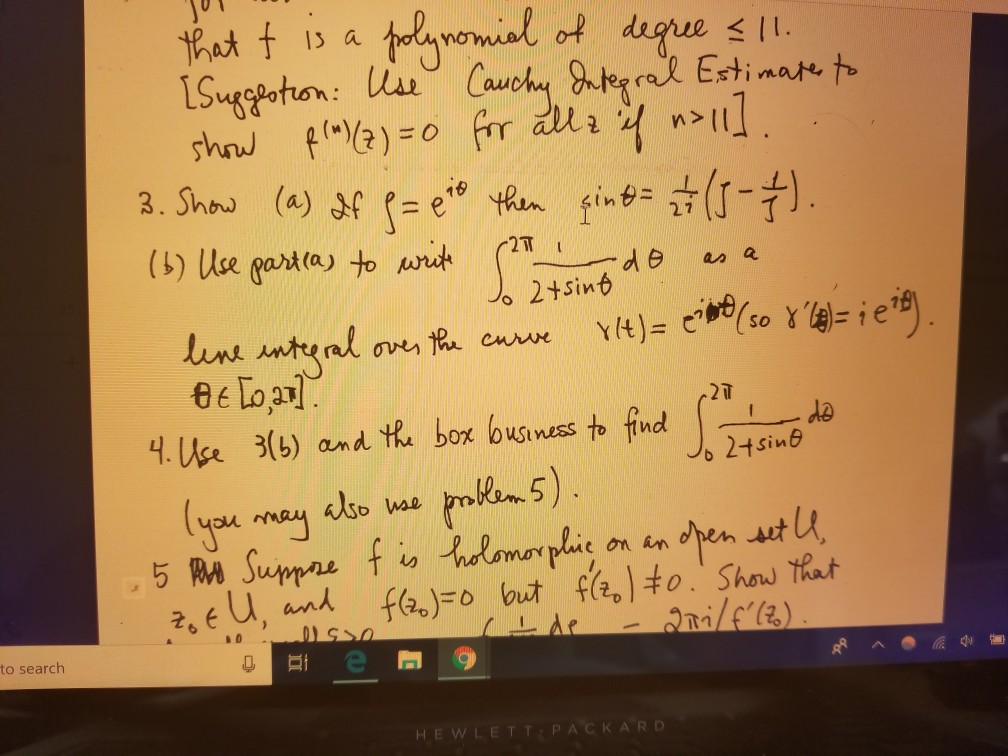 that f is a polynomial of degree ≤ 11.
[Suggestion: Use Cauchy Integral Estimates to
show f⁽ⁿ⁾(z) = 0 for all z if n>11].
3. Show (a) If ζ = e^{iθ} then sinθ = 1/2i (ζ - 1/ζ).
(b) Use part(a) to write ∫₀^{2π} 1/(2+sinθ) dθ as a
line integral over the curve γ(t) = e^{iθ} (so γ'(θ) = i e^{iθ}).
θ ∈ [0,2π].
4. Use 3(b) and the box business to find ∫₀^{2π} 1/(2+sinθ) dθ
(you may also use problem 5).
5 Suppose f is holomorphic on an open set U,
z₀ ∈ U, and f(z₀)=0 but f'(z₀) ≠ 0. Show that
2πi/f'(z₀).
to search
HEWLETT-PACKARD